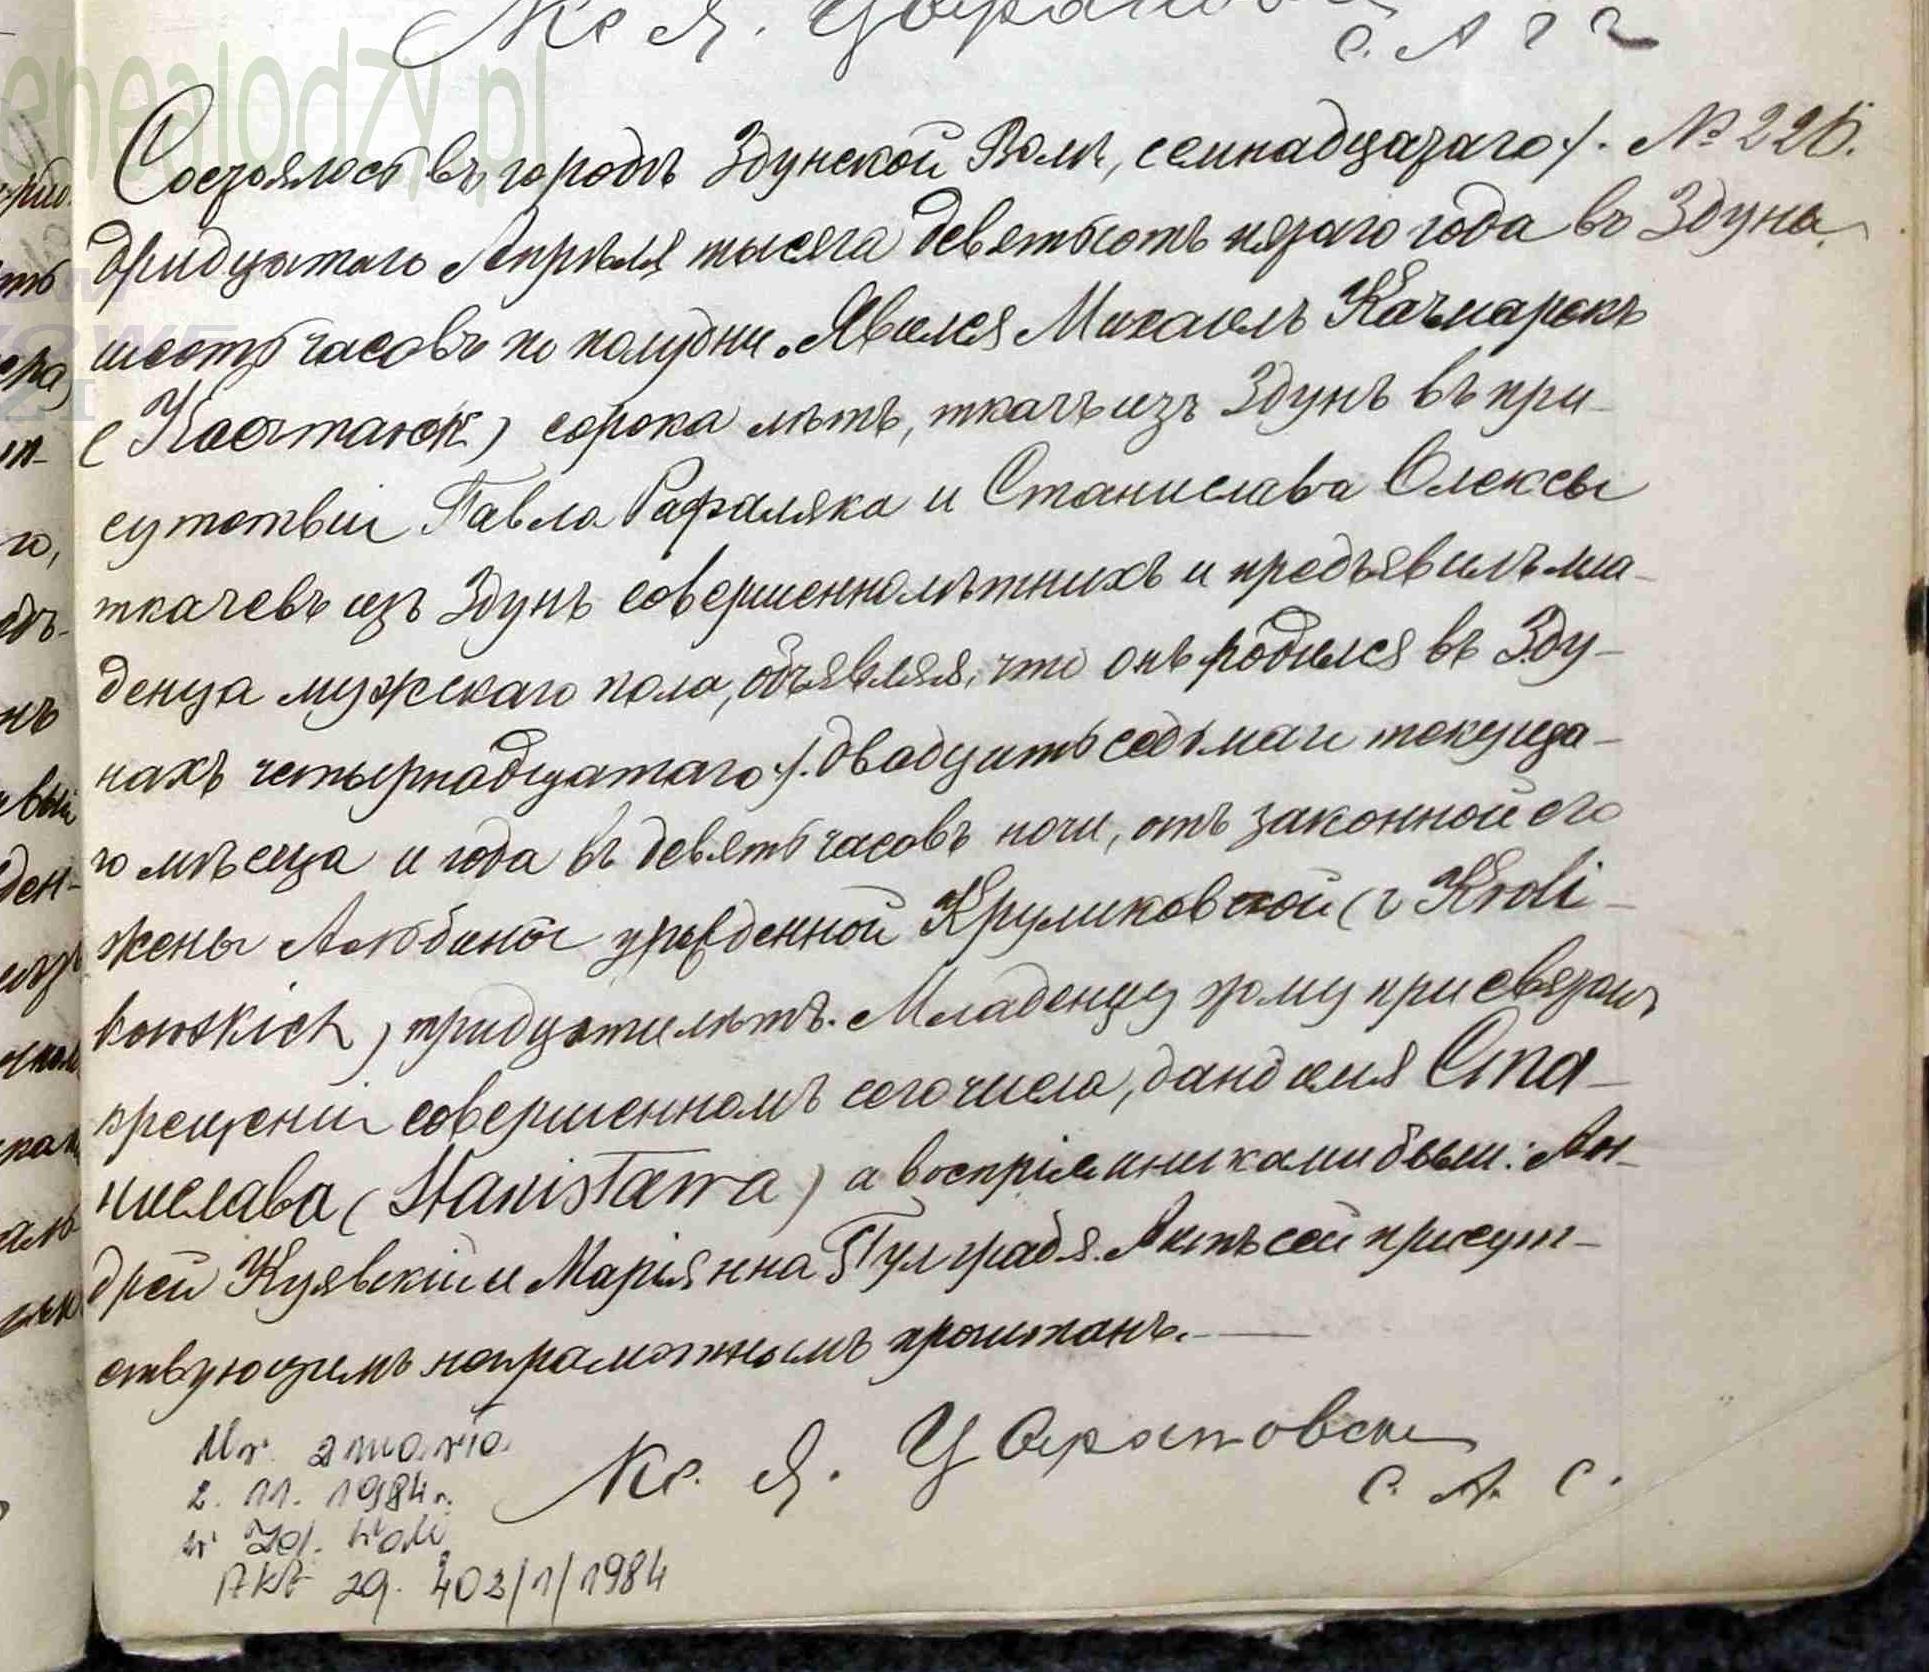 Кс Я.
Состоялось въ городѣ Здунской Волѣ, семнадцатаго /. № 226.
тридцатаго Апрѣля тысяча девятьсотъ пятаго года въ Здуна
шесть часовъ по полудни. Явился Михаилъ Качмарекъ
(Kaczmarek) сорока лѣтъ, ткачъ изъ Здунъ въ при-
сутствіи Павла Рафаляка и Станислава Олексы
ткачевъ изъ Здунъ совершеннолѣтнихъ и предъявилъ мла-
денца мужскаго пола, объявляя, что онъ родился въ Зду-
нахъ четырнадцатаго /. двадцать седьмаго текуща-
го мѣсяца и года въ девять часовъ ночи, отъ законной его
жены Альбины урожденной Круликовской (z Króli-
kowskich) тридцати лѣтъ. Младенцу этому при святомъ
крещеніи совершенномъ сего числа, дано имя Ста-
нислава (Stanisława) а воспріемниками были: Ан-
дрей Куявскій и Маріянна Акть сей присут-
ствующимъ неграмотнымъ прочитанъ.
Кс. Я.
С. А. С.
zmarła
2. 11. 1984 r.
w Zd. Woli
Akt zg. 403/1/1984
genealodzy.pl